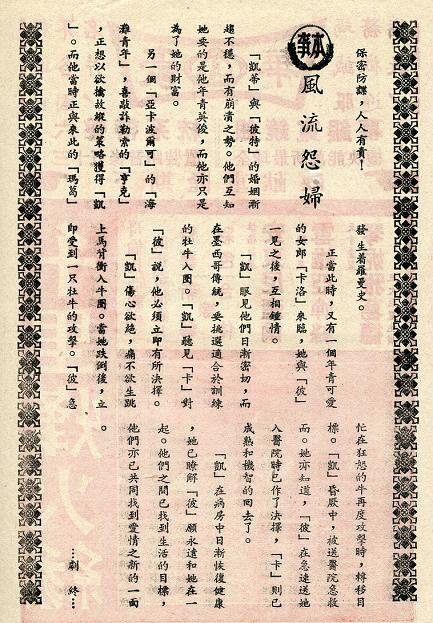 保密防諜,人人有責!
本事
風流怨婦
「凱蒂」與「彼特」的婚姻漸
趨不穩,而有崩潰之勢。他們互知
她要的是他年青英俊,而他亦只是
為了她的財富。
另一個「亞卡波爾可」的「海
灘青年」,喜敲詐勒索的「亨克」
,正想以欲擒故縱的策略獲得「凱
」。而他當時正與來此的「瑪葛」
發生着羅曼史。
正當此時,又有一個年青可愛
的女郎「卡洛」來臨,她與「彼」
一見之後,互相鍾情。
「凱」眼見他們日漸密切,而
在墨西哥傳統,要挑選適合於訓練
的牡牛入圍。「凱」聽見「卡」對
「彼」說,他必須立即有所決擇。
「凱」傷心欲絕,痛不欲生跳
上馬背衝入牛圍。當她跌倒後,立
即受到一只牡牛的攻擊。「彼」急
忙在狂怒的牛再度攻擊時,轉移目
標。「凱」昏厥中,被送醫院急救
而。她亦知道,「彼」在急速送她
入醫院時已作了決擇,「卡」則已
成熟和機智的回去了。
「凱」在病房中日漸恢復健康
,她已瞭解「彼」願永遠和她在一
起。他們之間已找到生活的目標,
他們亦已共同找到愛情之新的一面
。
…劇 終…